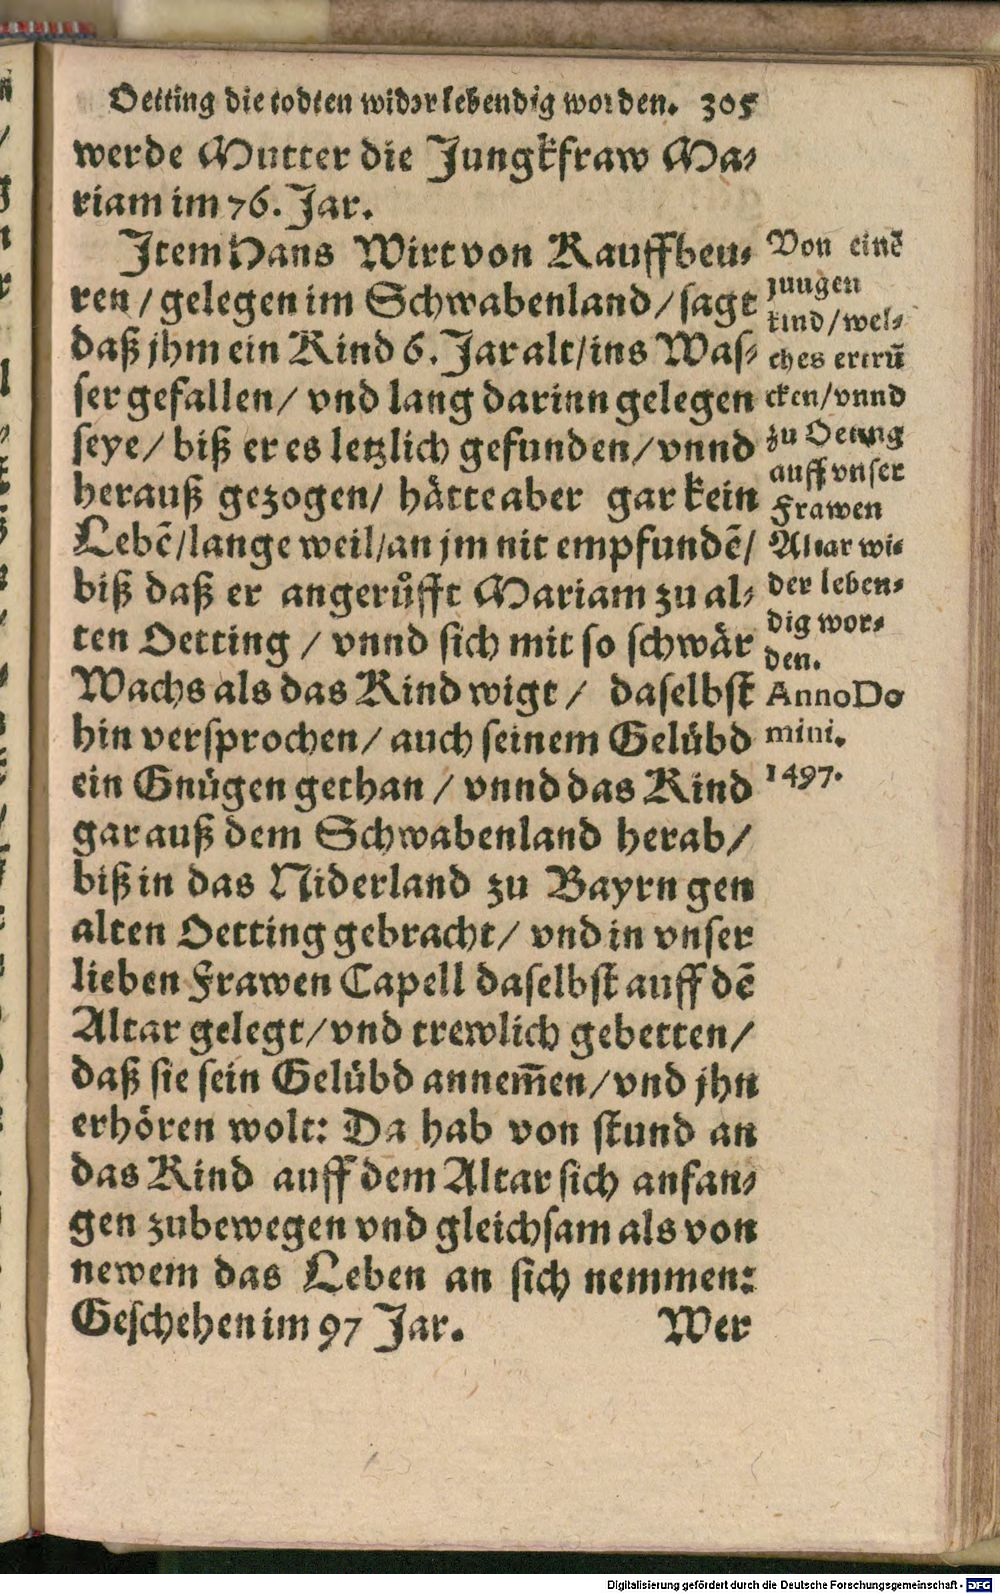 Oetting die todten wider lebendig worden. 305
werde Mutter die Jungkfraw Ma-
riam im 76. Jar.
Item Hans Wirt von Kauffbeu-
ren / gelegen im Schwabenland / sagt
daß jhm ein Kind 6. Jar alt / ins Was-
ser gefallen / vnd lang darinn gelegen
seye / biß er es letzlich gefunden / vnnd
herauß gezogen / hätte aber gar kein
Lebē / lange weil / an jm nit empfundē /
biß daß er angerůfft Mariam zu al-
ten Oetting / vnnd sich mit so schwär
Wachs als das Kind wigt / daselbst
hin versprochen / auch seinem Gelübd
ein Gnügen gethan / vnnd das Kind
gar auß dem Schwabenland herab /
biß in das Niderland zu Bayrn gen
alten Oetting gebracht / vnd in vnser
lieben Frawen Capell daselbst auff dē
Altar gelegt / vnd trewlich gebetten /
daß sie sein Gelübd annem̄en / vnd jhn
erhören wolt: Da hab von stund an
das Kind auff dem Altar sich anfan-
gen zubewegen vnd gleichsam als von
newem das Leben an sich nemmen:
Geschehen im 97 Jar.
Wer
Von einē
jungen
kind / wel-
ches ertrū
cken / vnnd
zu Oeting
auff vnser
Frawen
Altar wi-
der leben-
dig wor-
den.
Anno Do
mini.
1497.
Digitalisierung gefördert durch die Deutsche Forschungsgemeinschaft - DFG